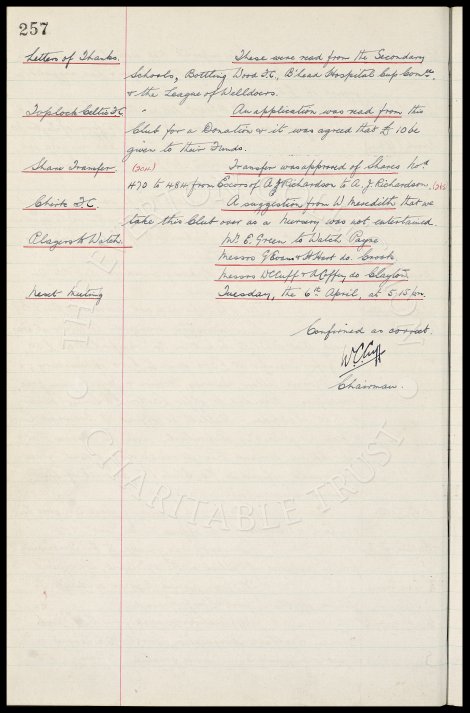 257
Letters of Thanks. These were read from the Secondary
Schools, Bottling Wood F.C., B'Head Hospital Cup Comtte.
& the League of Welldoers.
Toplock Celtic F.C. " An application was read from this
Club for a Donation & it was agreed that £10 be
given to their Funds.
Share Transfer. Transfer was approved of Shares Nos
470 to 484 from Excors of A J Richardson to A. J. Richardson.
Chirk F.C. A suggestion from W Meredith that we
take this Club over as a Nursery was not entertained.
Players to Watch. Mr. E. Green to Watch Payne
Messrs G Evans & H Hart do Crook
Messrs W C Cuff & A Coffey do Clayton
Next Meeting Tuesday, the 6th April, at 5.15 pm.
Confirmed as correct.
W.C. Cuff
Chairman.
CHARITABLE TRUST